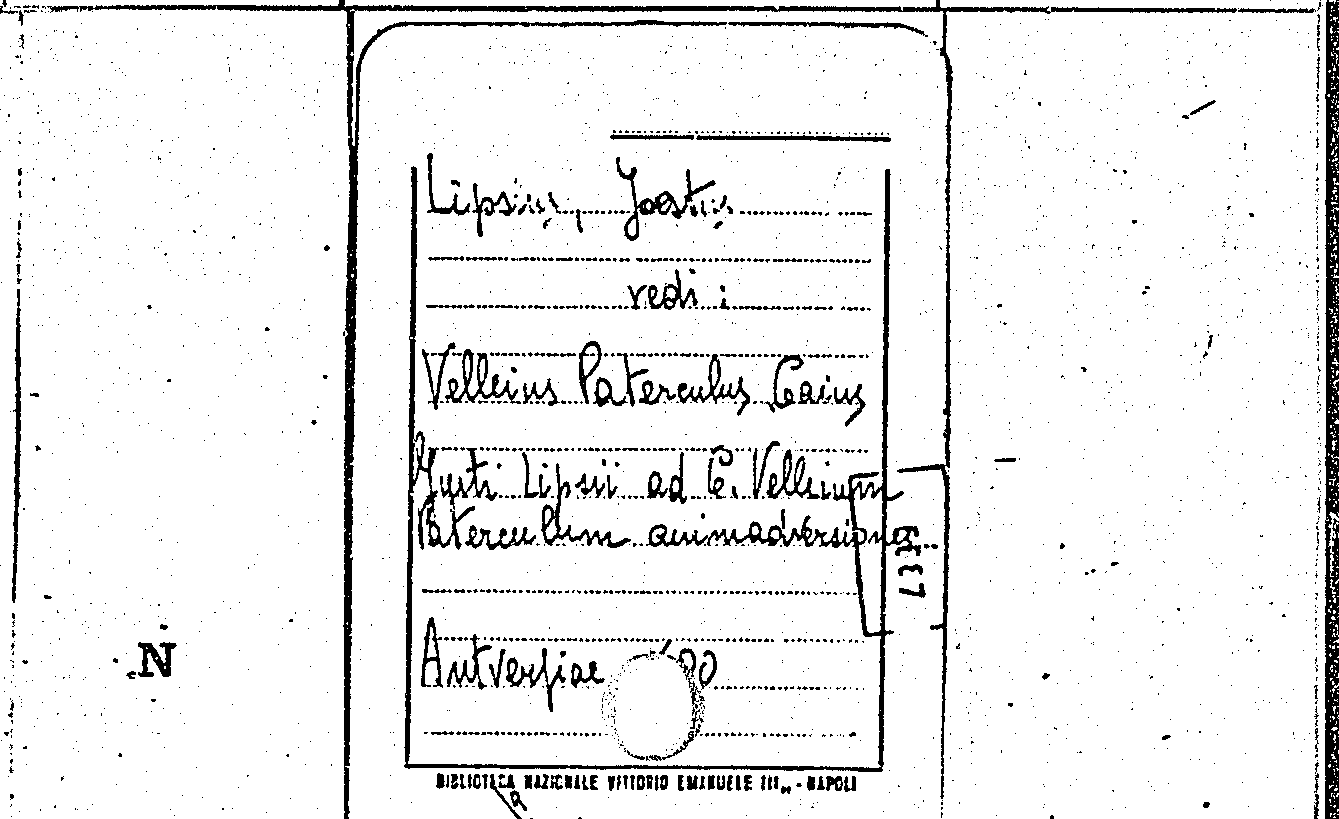 Lipsius, Jostus
vedi:
Velleius Paterculus, Gaius
Justi Lipsii ad C. Velleium
Paterculum animadversiones..
N
Antverpiae
BIBLIOTECA NAZIONALE VITTORIO EMANUELE III,, - NAPOLI